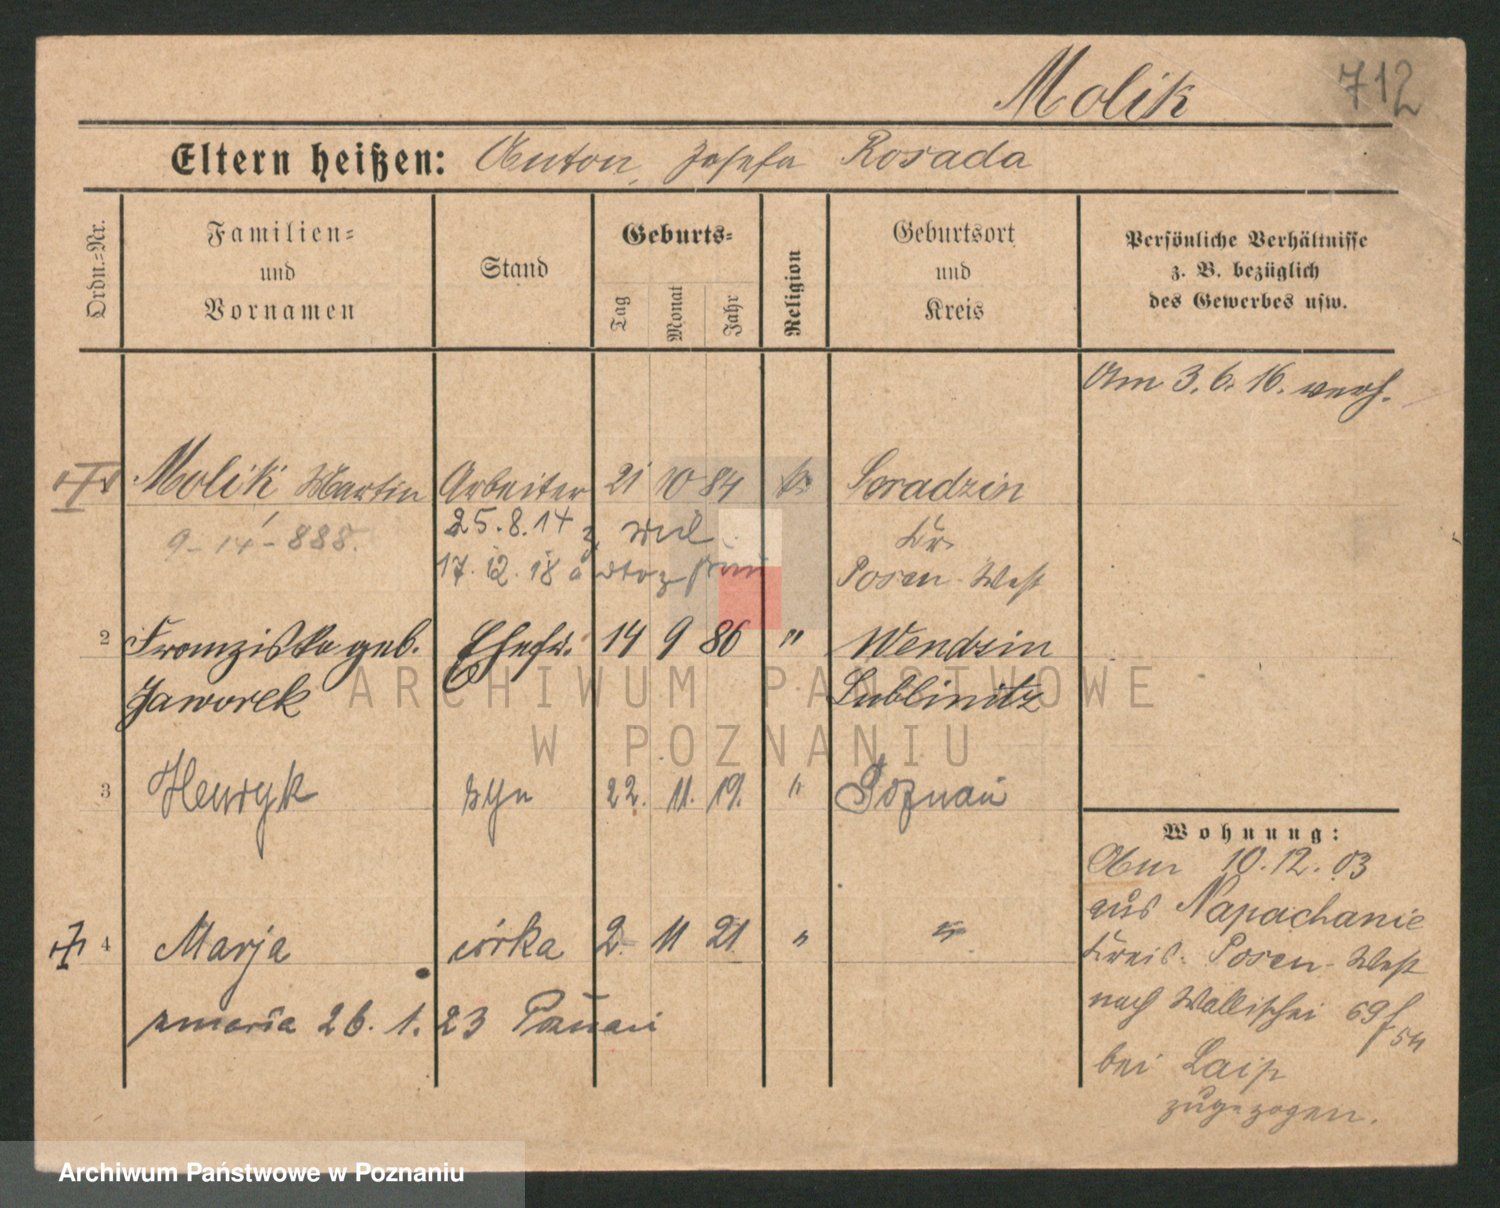 Molik
712
Eltern heißen: Anton, Josefa Rosada
Ordn.=Nr.
Familien=
und
Vornamen
Stand
Geburts=
Tag
Monat
Jahr
Religion
Geburtsort
und
Kreis
Persönliche Verhältnisse
z. B. bezüglich
des Gewerbes usw.
Am 3.6.16. verh.
Molik Martin Arbeiter 21 10 84 k. Soradzin
9-14-888. 25.8.14 z. Kr.
17.12.18 Posen-West
2 Franziska geb. Ehefr. 14 9 86 " Wendzin
Jaworek Lublinitz
3 Henryk syn 22. 11. 19. " Poznań
4 Marja córka 2. 11 21. " "
zmarła 26.1.23 Poznań
Wohnung:
Am 10.12.03
aus Napachanie
Kreis Posen-West
nach Wallischei 69/54
bei
zugezogen.
ARCHIWUM PAŃSTWOWE
W POZNANIU
Archiwum Państwowe w Poznaniu